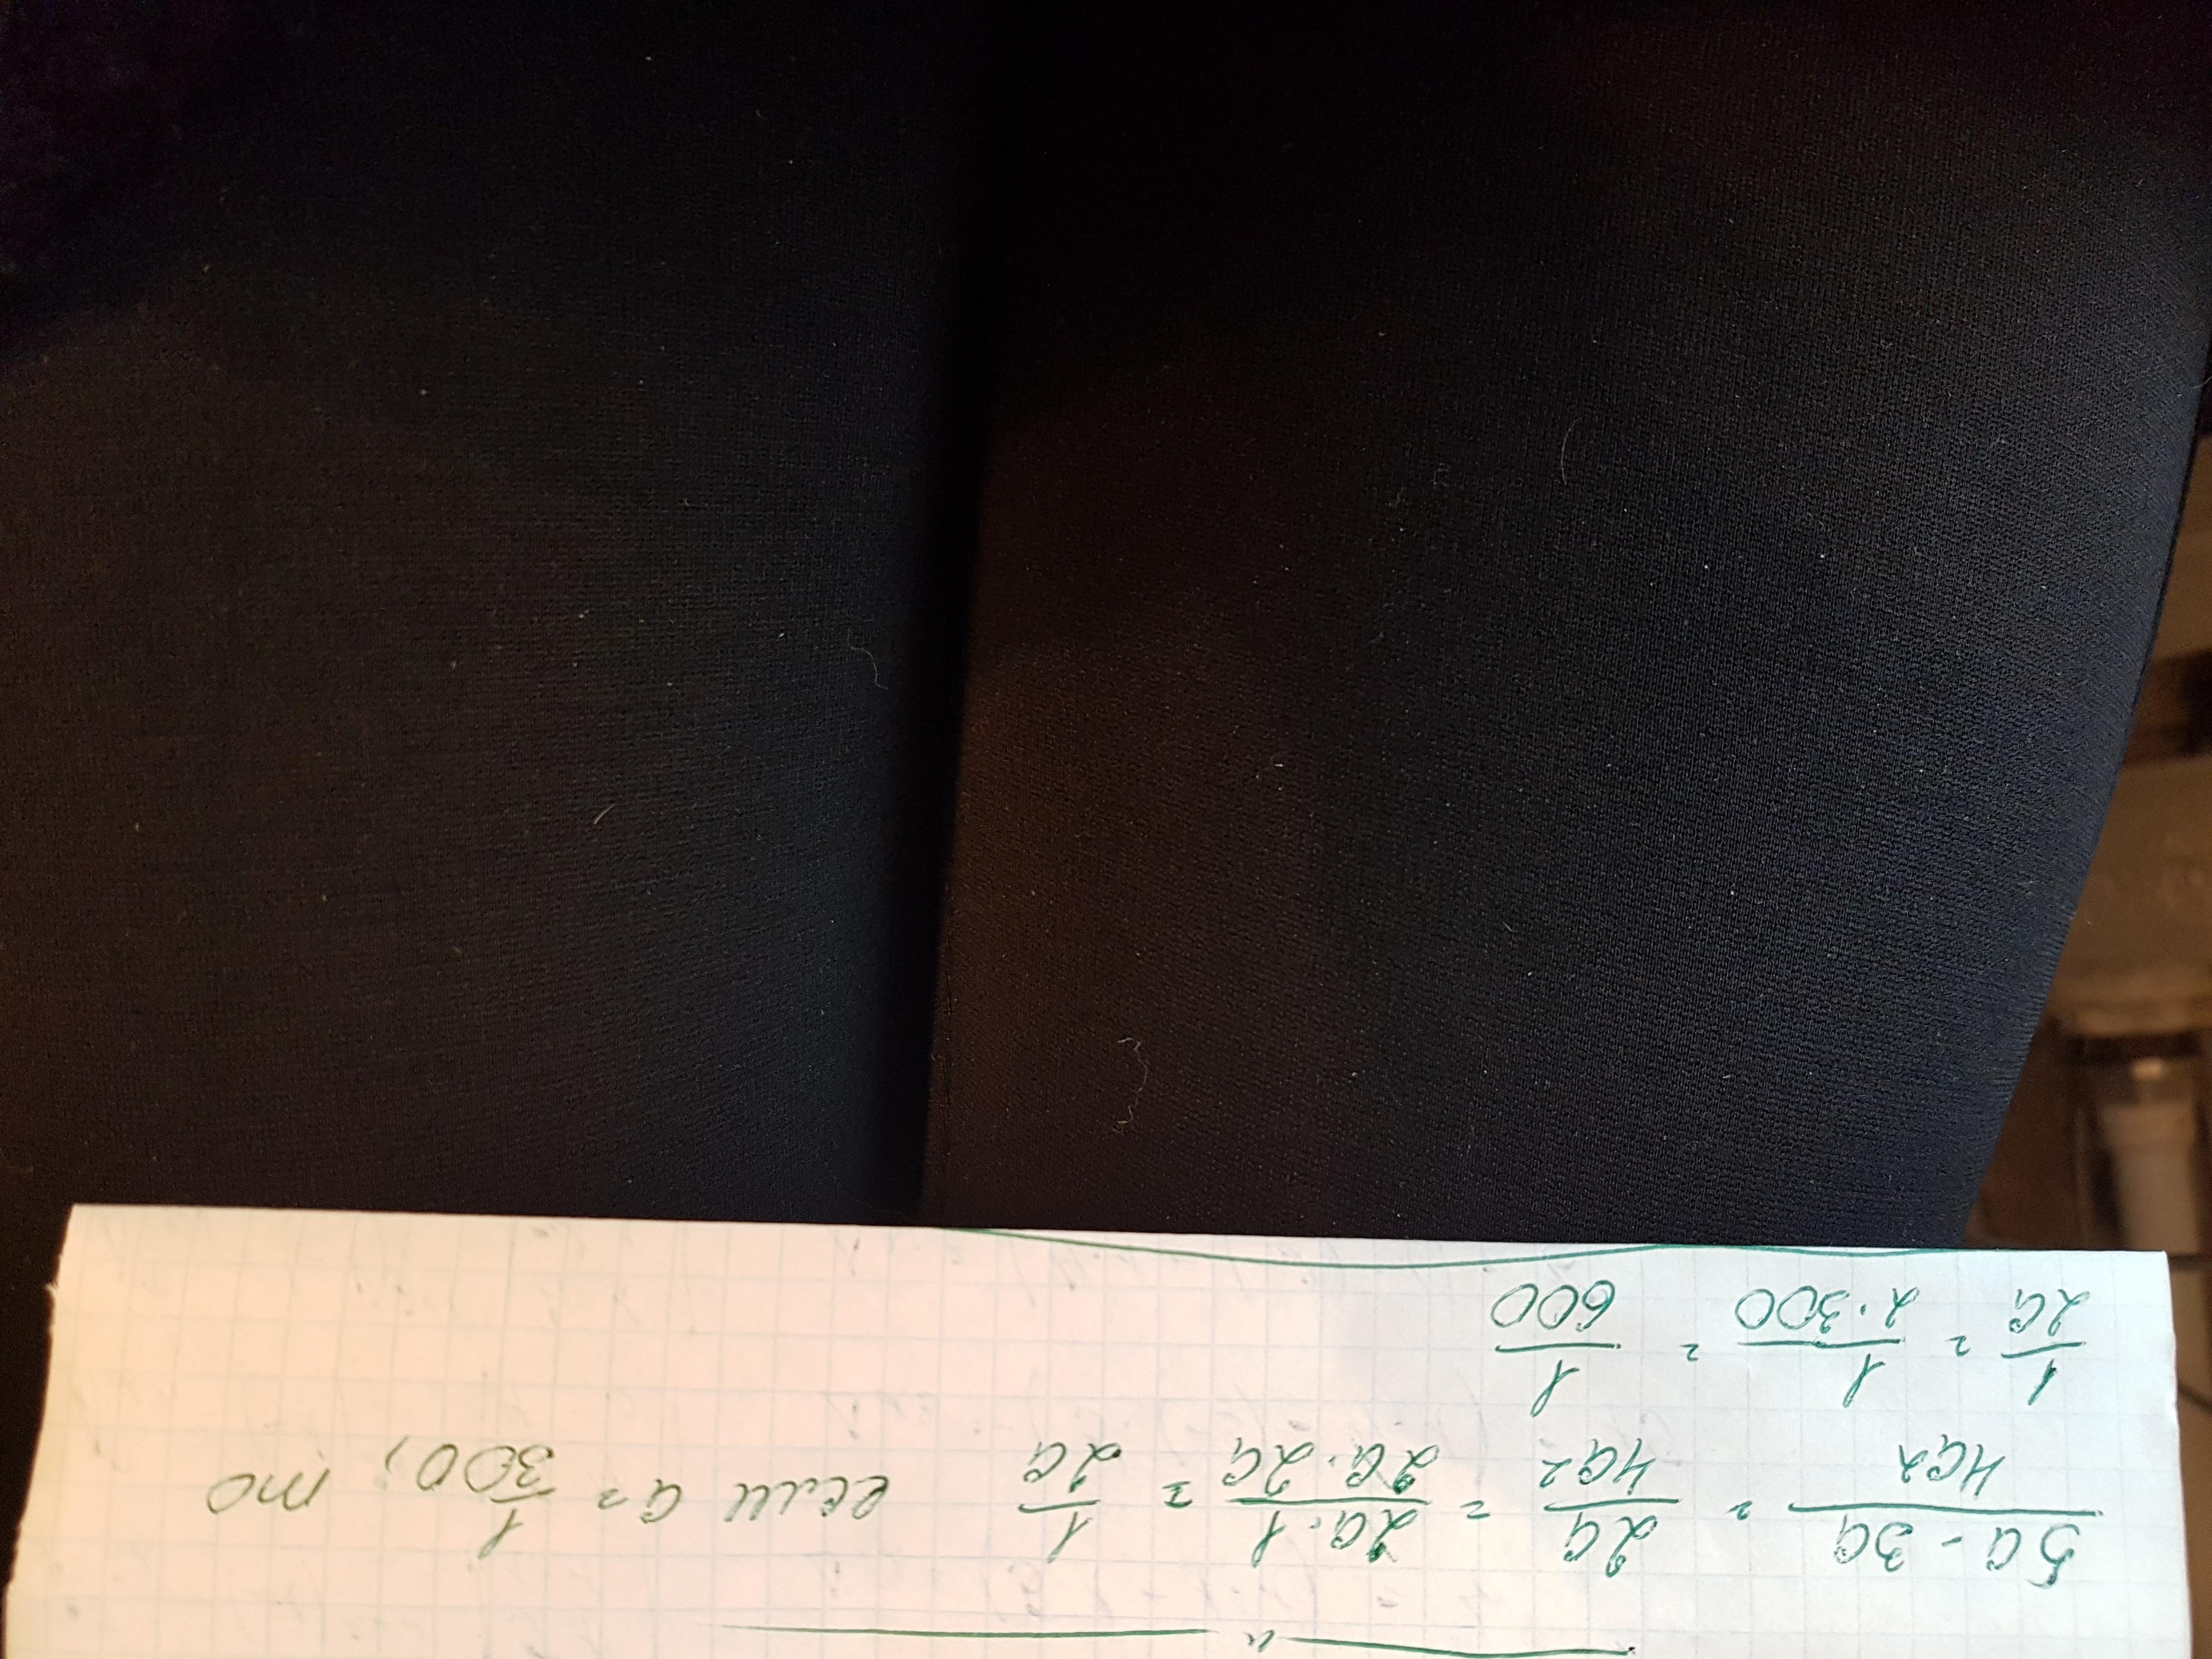 — " —
5a - 3a / 4a² = 2a / 4a² = 2a · 1 / 2a · 2a = 1 / 2a если a = 1 / 300, то
1 / 2a = 1 / 2 · 300 = 1 / 600